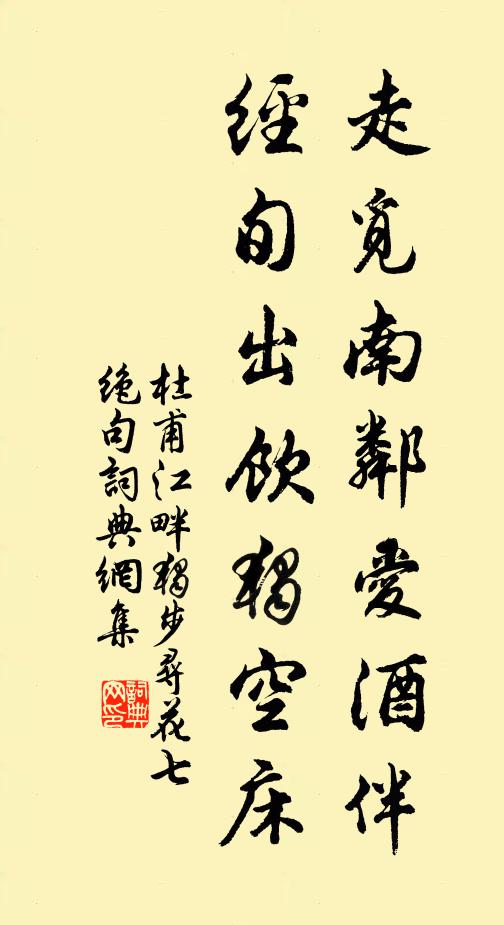 走覓南鄰愛酒伴
經旬出飲獨空床
杜甫江畔獨步尋花七
絕句詞典網集
詞典
网印